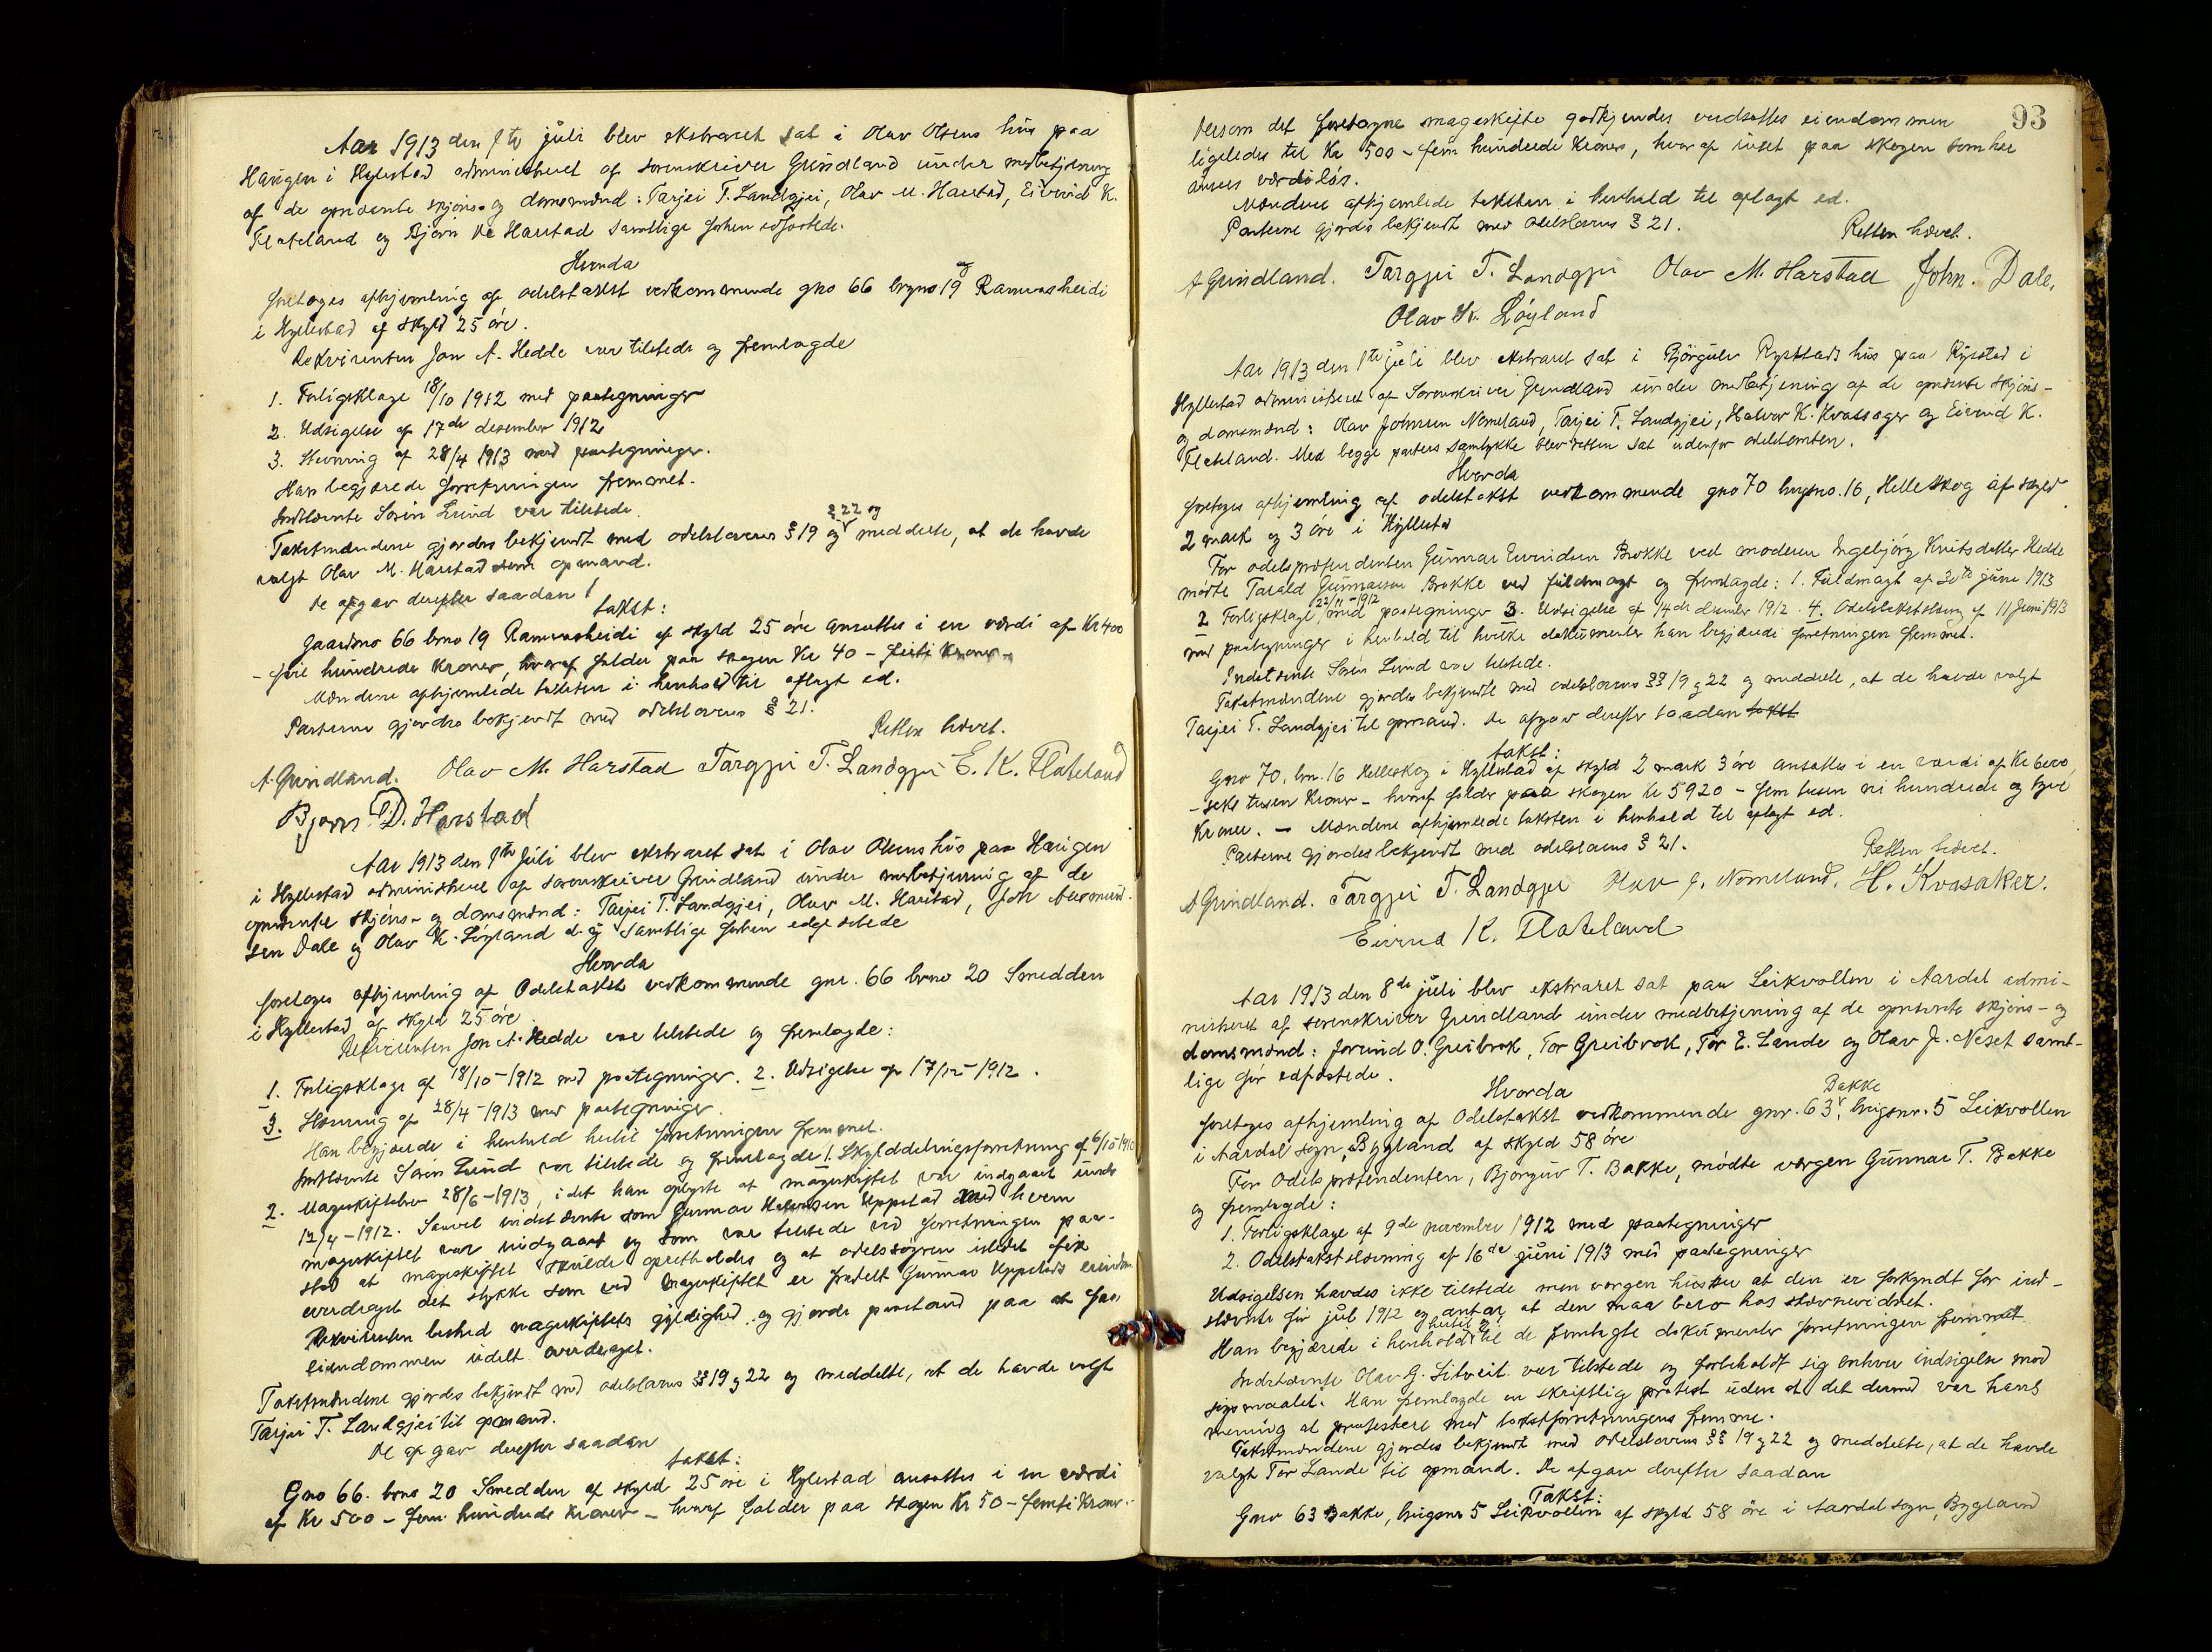 Aar 1913 den 1ste juli blev ekstraret sat i Olav Olsens hus paa
Haugen i Hylestad administreret af sorenskriver Grundland under medbetjening
af de opnævnte skjöns- og domsmænd: Tarjei T. Landgjei, Olav M. Harstad, Eivind K.
Flateland og Björn D. Harstad samtlige forhen edfæstede.
Hvorda
foretoges afhjemling af odelstakst vedkommende gno 66 brgno 19 Ramnasheidi
i Hyllestad af skyld 25 öre.
Rekvirenten Jon A. Hedde var tilstede og fremlagde
1. Forligsklage 18/10 1912 med paategninger
2. Udsigelse af 17de desember 1912
3. Stevning af 28/4 1913 med paategninger.
Han begjærede forretningen fremmet.
Indstevnte Sören Lund var tilstede.
Takstmændene gjordes bekjendt med odelslovens § 19 og § 22 og meddelte, at de havde
valgt Olav M. Harstad som opmand.
De afgav derefter saadan
takst:
Gaardsno 66 brno 19 Ramnasheidi af skyld 25 öre ansættes i en værdi af Kr 400
- fire hundrede Kroner, hvoraf falder paa skogen Kr 40 - firti Kroner -
Mændene afhjemlede taksten i henhold til aflagt ed.
Parterne gjordes bekjendt med odelslovens § 21.
Retten hævet.
A. Grundland. Olav M. Harstad Targjei T. Landgjei E. K. Flateland
Bjørn D. Harstad
Aar 1913 den 1ste Juli blev ekstraret sat i Olav Olsens hus paa Haugen
i Hyllestad administreret af sorenskriver Grundland under medbetjening af de
opnævnte skjöns- og domsmænd: Tarjei T. Landgjei, Olav M. Harstad, John Aasmund-
sen Dale og Olav K. Löyland d. y. samtlige forhen edfæstede
Hvorda
foretoges afhjemling af Odelstakst vedkommende gnr. 66 brno 20 Smedden
i Hyllestad af skyld 25 öre
Rekvirenten Jon A. Hedde var tilstede og fremlagde:
1. Forligsklage af 18/10-1912 med paategninger. 2. Udsigelse af 17/12-1912.
3. Stevning af 28/4-1913 med paategninger.
Han begjærede i henhold hertil forretningen fremmet.
Indstevnte Sören Lund var tilstede og fremlagde 1. Skylddelingsforretning af 6/10 1910
2. Mageskiftebrev 28/6-1913, idet han oplyste at mageskiftet var indgaaet under
12/4-1912. Saavel indstævnte som Gunnar Uppstad med hvem
mageskiftet var indgaaet og som var tilstede ved forretningen paa-
stod at mageskiftet skulde opretholdes og at odelssögeren istedet fik
overdraget det stykke som ved mageskiftet er fradelt Gunnar Uppstads eiendom
Rekvirenten bestred mageskiftets gyldighed og gjorde paastand paa at faa
eiendommen udelt overdraget.
Takstmændene gjordes bekjendt med odelslovens §§ 19 og 22 og meddelte, at de havde valgt
Tarjei T. Landgjei til opmand.
De afgav derefter saadan
takst:
Gno 66. brno 20 Smedden af skyld 25 öre i Hylestad ansættes i en værdi
af Kr 500 - fem hundrede Kroner - hvoraf falder paa skogen Kr 50 - femti Kroner -
93
Dersom det foretagne mageskifte godkjendes verdsættes eiendommen
ligeledes til Kr 500 - fem hundrede Kroner, hvoraf intet paa skogen som her
ansees værdilös.
Mændene afhjemlede taksten i henhold til aflagt ed.
Parterne gjordes bekjendt med odelslovens § 21.
Retten hævet.
A Grundland. Targjei T. Landgjei Olav M. Harstad John. Dale.
Olav K. Löyland
Aar 1913 den 1ste juli blev ekstraret sat i Björgulv Rystads hus paa Rystad i
Hyllestad administreret af Sorenskriver Grundland under medbetjening af de opnævnte skjöns-
og domsmænd: Olav Johnsen Nomeland, Tarjei T. Landgjei, Halvor K. Kvasager og Eivind K.
Flateland. Med begge parters samtykke blev retten sat udenfor odelstomten.
Hvorda
foretoges afhjemling af odelstakst vedkommende gno 70 brugsno. 16, Helleskog af skyld
2 mark og 3 öre i Hyllestad
For odelsprætendenten Gunnar Eivindsen Brokke ved moderen Ingebjörg Knutsdatter Hedde
mödte Tarald Gunnarson Brokke ved fuldmagt og fremlagde: 1. Fuldmagt af 30te juni 1913
2 Forligsklage 22/11-1912 med paategninger 3. Udsigelse af 14de desember 1912. 4. Odelstakststevning af 11 Juni 1913
med paategninger i henhold til hvilke dokumenter han begjærede forretningen fremmet.
Indstevnte Sören Lund var tilstede.
Takstmændene gjordes bekjendte med odelslovens §§ 19 og 22 og meddelte, at de havde valgt
Tarjei T. Landgjei til opmand. De afgav derefter saadan takst
takst:
Gno 70, brn. 16 Helleskog i Hyllestad af skyld 2 mark 3 öre ansættes i en værdi af Kr 6000,
- seks tusen Kroner - hvoraf falder paa skogen Kr 5920 - fem tusen ni hundrede og tyve
Kroner. - Mændene afhjemlede taksten i henhold til aflagt ed.
Parterne gjordes bekjendt med odelslovens § 21.
Retten hævet.
A Grundland. Targjei T. Landgjei Olav J. Nomeland. H. Kvasaker.
Eivind K. Flateland
Aar 1913 den 8de juli blev ekstraret sat paa Leikvollen i Aardal admi-
nistreret af sorenskriver Grundland under medbetjening af de opnævnte skjöns- og
domsmænd: Jorund O. Greibrok, Tor Greibrok, Tor E. Lande og Olav J. Neset samt-
lige för edfæstede.
Hvorda
foretoges afhjemling af Odelstakst vedkommende gnr. 63 Bakke, brugsnr. 5 Leikvollen
i Aardal sogn, Bygland af skyld 58 öre
For Odelsprætendenten, Björguv T. Bakke, mödte værgen Gunnar T. Bakke
og fremlagde:
1. Forligsklage af 9de november 1912 med paategninger
2. Odelstakststevning af 16de juni 1913 med paategninger
Udsigelsen havdes ikke tilstede men værgen husker at den er forkyndt for ind-
stevnte för jul 1912 og antar at den maa bero hos stevnevidnet.
Han begjærede i henhold hertil og til de fremlagte dokumenter forretningen fremmet.
Indstævnte Olav G. Litveit var tilstede og forbeholdt sig enhver indsigelse mod
sögsmaalet. Han fremlagde en skriftlig protest uden at det dermed var hans
mening at protestere mod takstforretningens fremme.
Takstmændene gjordes bekjendt med odelslovens §§ 19 og 22 og meddelte, at de havde
valgt Tor Lande til opmand. De afgav derefter saadan
Takst:
Gno 63 Bakke, brugsnr 5 Leikvollen af skyld 58 öre i Aardal sogn, Bygland